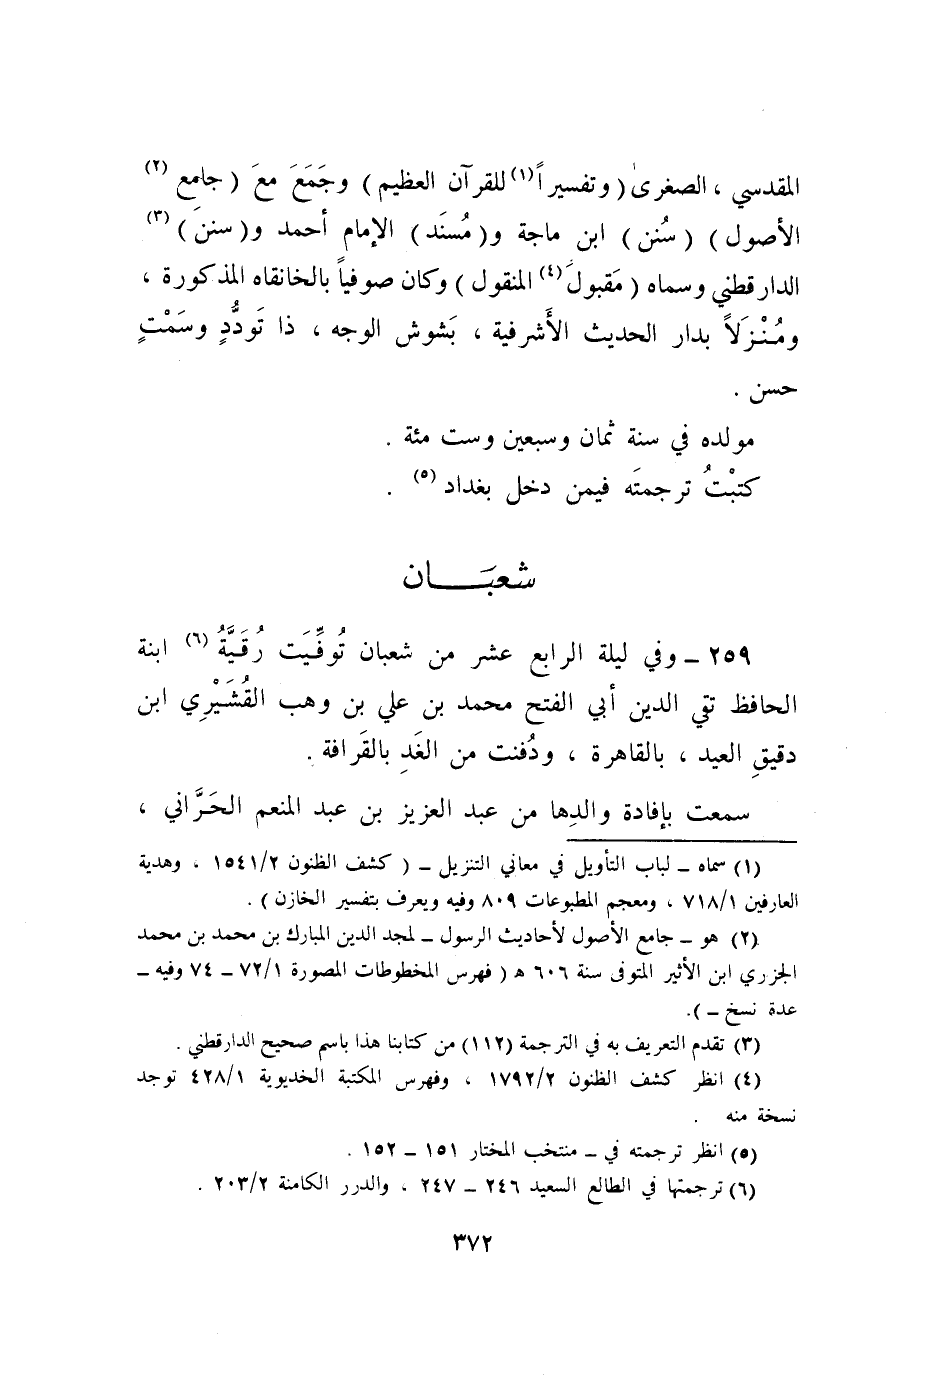 المقدسي ، الصغرىٰ ( وتفسيراً(١) للقرآن العظيم ) وجَمَعَ معَ ( جامع (٢)
الأصول ) ( سُنن ) ابن ماجة و( مُسنَد ) الإمام أحمد و( سننَ ) (٣)
الدارقطني وسماه ( مَقبولَ(٤) المنقول ) وكان صوفياً بالخانقاه المذكورة ،
ومُنْزَلاً بدار الحديث الأَشرفية ، بَشوش الوجه ، ذا تَودُّدٍ وسَمْتٍ
حسن .
مولده في سنة ثمان وسبعين وست مئة .
كتبْتُ ترجمتَه فيمن دخل بغداد (٥) .
شعبَـــان
٢٥٩ ـ وفي ليلة الرابع عشر من شعبان تُوفِّيَت رُقَيَّةُ (٦) ابنة
الحافظ تقي الدين أبي الفتح محمد بن علي بن وهب القُشَيْرِي ابن
دقيقِ العيد ، بالقاهرة ، ودُفنت من الغَدِ بالقَرافة .
سمعت بإفادة والدِها من عبد العزيز بن عبد المنعم الحَرَّاني ،
(١) سماه ـ لباب التأويل في معاني التنزيل ـ ( كشف الظنون ١٥٤١/٢ ، وهدية
العارفين ٧١٨/١ ، ومعجم المطبوعات ٨٠٩ وفيه ويعرف بتفسير الخازن ) .
(٢) هو ـ جامع الأصول لأحاديث الرسول ـ لمجد الدين المبارك بن محمد بن محمد
الجزري ابن الأثير المتوفى سنة ٦٠٦ ه ( فهرس المخطوطات المصورة ٧٢/١ ـ ٧٤ وفيه ـ
عدة نسخ ـ ).
(٣) تقدم التعريف به في الترجمة (١١٢) من كتابنا هذا باسم صحيح الدارقطني .
(٤) انظر كشف الظنون ١٧٩٢/٢ ، وفهرس المكتبة الخديوية ٤٢٨/١ توجد
نسخة منه .
(٥) انظر ترجمته في ـ منتخب المختار ١٥١ ـ ١٥٢ .
(٦) ترجمتها في الطالع السعيد ٢٤٦ ـ ٢٤٧ ، والدرر الكامنة ٢٠٣/٢ .
٣٧٢